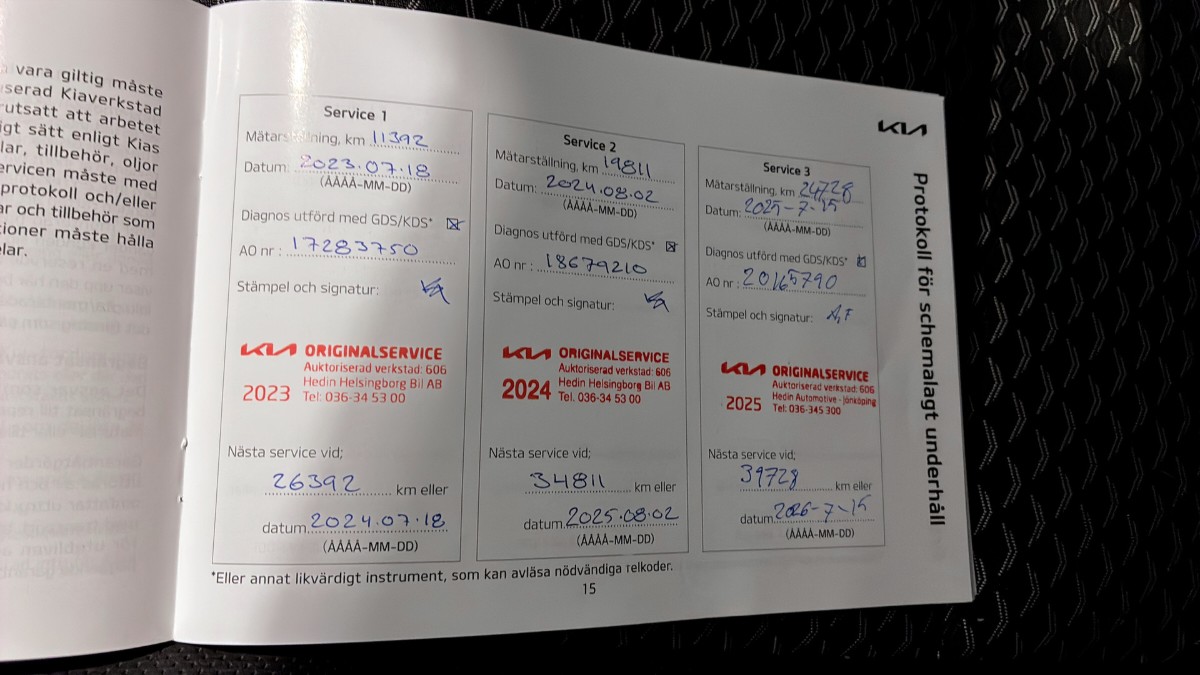 vara giltig måste
serad Kiaverkstad
rutsatt att arbetet
igt sätt enligt Kias
lar, tillbehör, oljor
ervicen måste med
protokoll och/eller
ar och tillbehör som
tioner måste hålla
elar.
KIA
Protokoll för schemalagt underhåll
Service 1
Mätarställning, km 11392
Datum: 2023.07.18
(ÅÅÅÅ-MM-DD)
Diagnos utförd med GDS/KDS*
AO nr : 17283750
Stämpel och signatur:
KIA ORIGINALSERVICE
Auktoriserad verkstad: 606
Hedin Helsingborg Bil AB
2023 Tel: 036-34 53 00
Nästa service vid;
26392 km eller
datum 2024.07.18
(ÅÅÅÅ-MM-DD)
Service 2
Mätarställning, km 19811
Datum: 2024.08.02
(ÅÅÅÅ-MM-DD)
Diagnos utförd med GDS/KDS*
AO nr : 18679210
Stämpel och signatur:
KIA ORIGINALSERVICE
Auktoriserad verkstad: 606
Hedin Helsingborg Bil AB
2024 Tel. 036-34 53 00
Nästa service vid;
34811 km eller
datum 2025.08.02
(ÅÅÅÅ-MM-DD)
Service 3
Mätarställning, km 24728
Datum: 2025-7-15
(ÅÅÅÅ-MM-DD)
Diagnos utförd med GDS/KDS*
AO nr : 20165790
Stämpel och signatur: A,F
KIA ORIGINALSERVICE
Auktoriserad verkstad: 606
Hedin Automotive - Jönköping
2025 Tel: 036-345 300
Nästa service vid;
39728 km eller
datum 2026-7-15
(ÅÅÅÅ-MM-DD)
*Eller annat likvärdigt instrument, som kan avläsa nödvändiga relkoder.
15